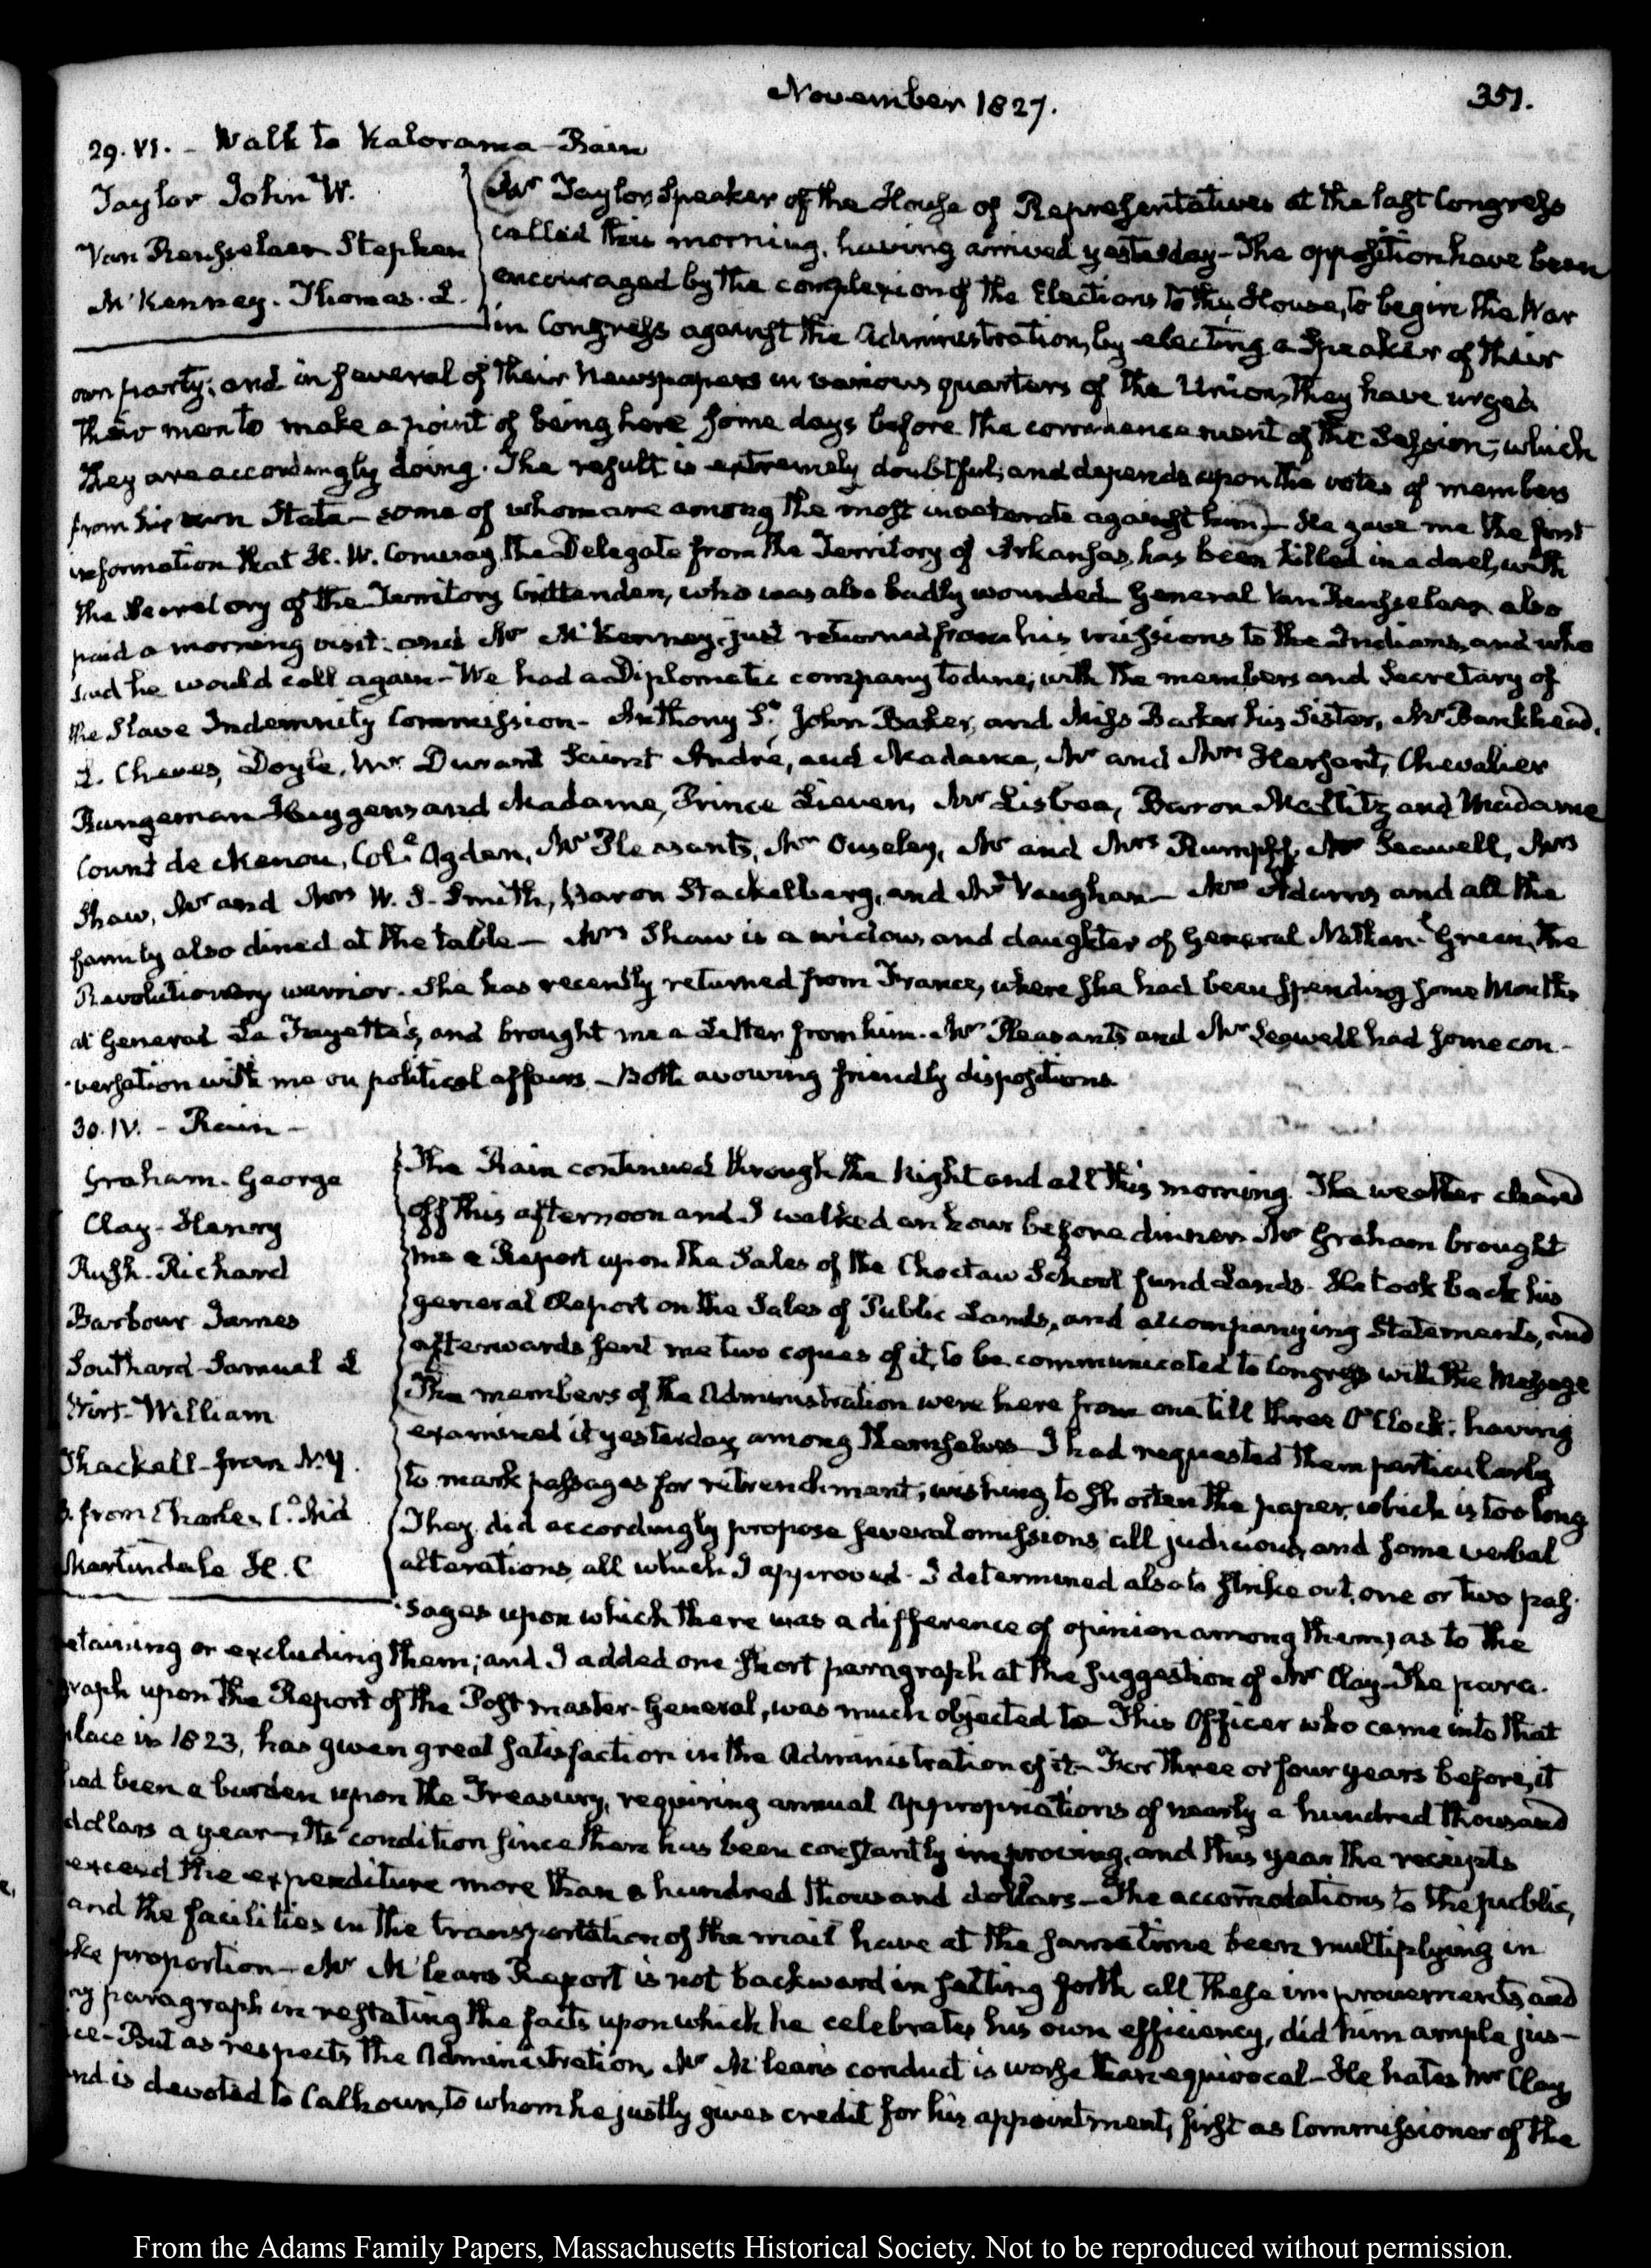 November 1827.
351.
29. VI. - Walk to Kalorama - Rain
Taylor John W.
Van Rensselaer Stephen
McKenney. Thomas. L.
Mr Taylor, Speaker of the House of Representatives at the last Congress
called this morning, having arrived yesterday - The opposition have been
encouraged by the complexion of the Elections to the House, to begin the War
in Congress against the Administration, by electing a Speaker of their
own party; and in several of their Newspapers in various quarters of the Union, they have urged
their men to make a point of being here some days before the commencement of the Session; which
they are accordingly doing. The result is extremely doubtful; and depends upon the votes of members
from his own State - some of whom are among the most inveterate against him - He gave me the first
information that H. W. Conway, the Delegate from the Territory of Arkansas, has been killed in a duel, with
the Secretary of the Territory Crittenden, who was also badly wounded. General Van Rensselaer also
paid a morning visit: and Mr McKenney, just returned from his missions to the Indians, and who
said he would call again - We had a Diplomatic company to dine; with the members and Secretary of
the Slave Indemnity Commission - Anthony St. John Baker, and Miss Baker his Sister, Mr Bankhead,
L. Cheves, Doyle, Mr Durant Saint André, and Madame, Mr and Mrs Hersant, Chevalier
Bangeman Huygens and Madame, Prince Lieven, Mr Lisboa, Baron Maltitz and Madame
Count de Menou, Col. Ogden, Mr Pleasants, Mr Ouseley, Mr and Mrs Rumpff, Mr Seawell, Mrs
Shaw, Mr and Mrs W. S. Smith, Baron Stackelberg, and Mr Vaughan - Mrs Adams and all the
family also dined at the table - Mrs Shaw is a widow, and daughter of General Nathan.l Green, the
Revolutionary warrior. She has recently returned from France, where she had been spending some Months
at General La Fayette's, and brought me a Letter from him. Mr Pleasants and Mr Seawell had some con-
versation with me on political affairs - Both avowing friendly dispositions.
30. IV. - Rain -
Graham. George
Clay - Henry
Rush. Richard
Barbour James
Southard Samuel L
Wirt - William
Shackall - from N.Y.
from Charles
Martindale H. C
The Rain continued through the Night and all this morning. The weather cleared
off this afternoon and I walked an hour before dinner. Mr Graham brought
me a Report upon the Sales of the Choctaw School fund Lands. He took back his
general Report on the Sales of Public Lands, and accompanying Statements, and
afterwards sent me two copies of it, to be communicated to Congress with the Message
The members of the Administration were here from one till three O'Clock: having
examined it yesterday among themselves - I had requested them particularly
to mark passages for retrenchment; wishing to shorten the paper, which is too long
They did accordingly propose several omissions, all judicious, and some verbal
alterations, all which I approved. I determined also to strike out, one or two pas-
sages upon which there was a difference of opinion among them, as to the
retaining or excluding them; and I added one short paragraph at the suggestion of Mr Clay - The para-
graph upon the Report of the Post master-General, was much objected to - This Officer who came into that
place in 1823, has given great satisfaction in the Administration of it - For three or four years before, it
had been a burden upon the Treasury, requiring annual appropriations of nearly a hundred thousand
dollars a year - Its condition since then has been constantly improving, and this year the receipts
exceed the expenditure more than a hundred thousand dollars - The accommodations to the public,
and the facilities in the transportation of the mail have at the same time been multiplying in
like proportion - Mr McLean's Report is not backward in setting forth all these improvements, and
my paragraph in restating the facts upon which he celebrates his own efficiency, did him ample jus-
tice - But as respects the Administration, Mr McLean's conduct is worse than equivocal - He hates Mr Clay,
and is devoted to Calhoun, to whom he justly gives credit for his appointment, first as Commissioner of the
From the Adams Family Papers, Massachusetts Historical Society. Not to be reproduced without permission.